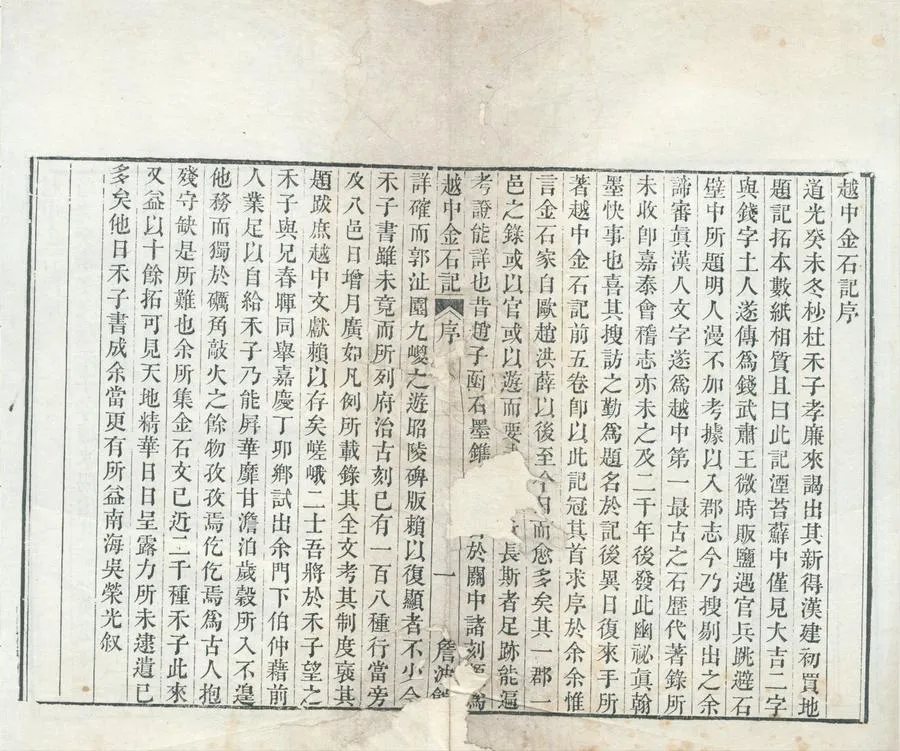 越中金石記序
道光癸未冬杪杜禾子孝廉來謁出其新得漢建初買地
題記拓本數紙相質且曰此記湮苔蘚中僅見大吉二字
與錢字土人遂傳爲錢武肅王微時販鹽遇官兵跳避石
壁中所題明人漫不加考據以入郡志今乃搜剔出之余
諦審眞漢人文字遂爲越中第一最古之石歷代著錄所
未收卽嘉泰會稽志亦未之及二千年後發此幽祕眞翰
墨快事也喜其搜訪之勤爲題名於記後異日復來手所
著越中金石記前五卷卽以此記冠其首求序於余余惟
言金石家自歐趙洪薛以後至今日而愈多矣其一郡一
邑之錄或以官或以遊而要長斯者足跡能遍
考證能詳也昔趙子函石墨鐫於關中諸刻爲
越中金石記 序 一
詳確而郭沚園九嵕之遊昭陵碑版賴以復顯者不少今
禾子書雖未竟而所列府治古刻已有一百八種行當旁
及八邑日增月廣如凡例所載錄其全文考其制度裒其
題跋庶越中文獻賴以存矣嵯峨二士吾將於禾子望之
禾子與兄春暉同舉嘉慶丁卯鄉試出余門下伯仲藉前
人業足以自給禾子乃能屏華靡甘澹泊歲穀所入不遑
他務而獨於礪角敲火之餘物孜孜焉仡仡焉爲古人抱
殘守缺是所難也余所集金石文已近二千種禾子此來
又益以十餘拓可見天地精華日日呈露力所未逮遺已
多矣他日禾子書成余當更有所益南海吳榮光叙